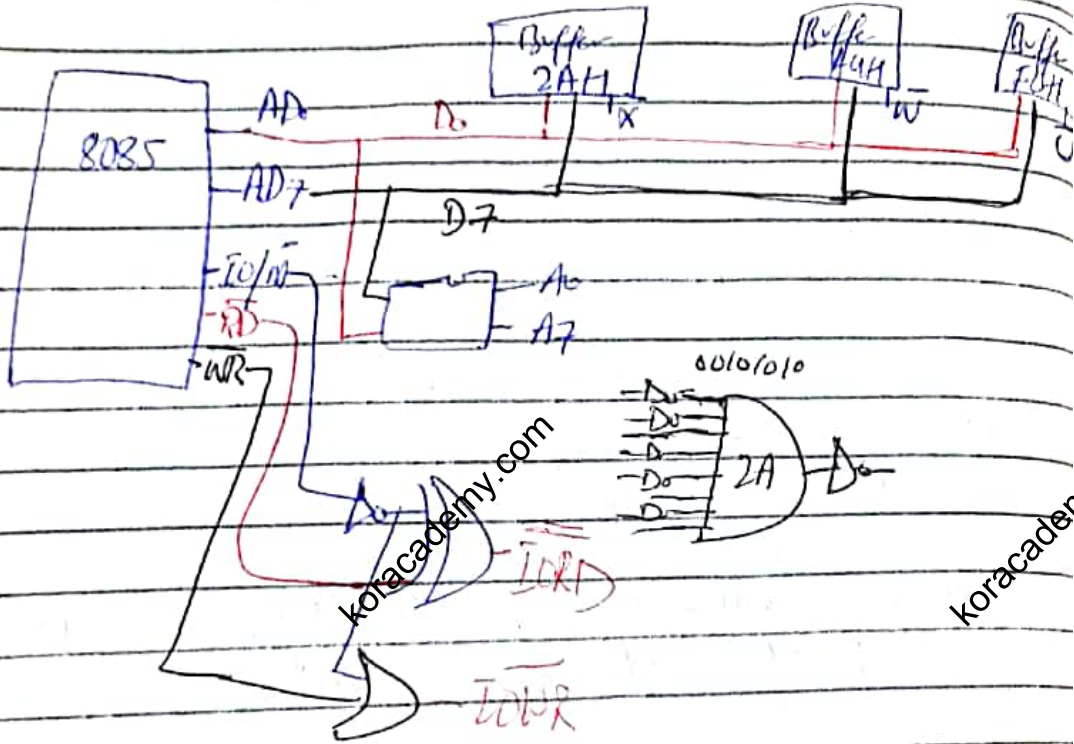 Buffer
2AH
X
Buffer
A4H
W
Buffer
8085
AD0
D0
AD7
D7
IO/M
RD
WR
A0
A7
00101010
2A
IORD
IOWR
koracademy.com
koracadem